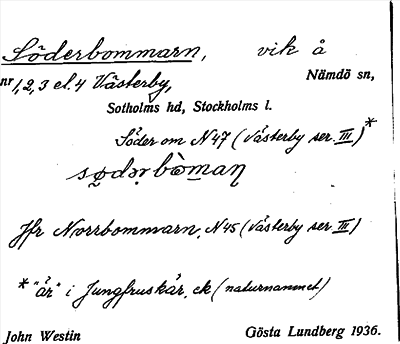 Söderbommarn, vik å
nr 1, 2, 3 el. 4 Västerby, Nämdö sn,
Sotholms hd, Stockholms l.
Söder om N 47 (Västerby ser. III)*
sø̨dərbòmaɳ
Jfr Norrbommarn, N 45 (Västerby ser. III)
* "år" i Jungfruskår, ek (naturnamnet)
John Westin Gösta Lundberg 1936.